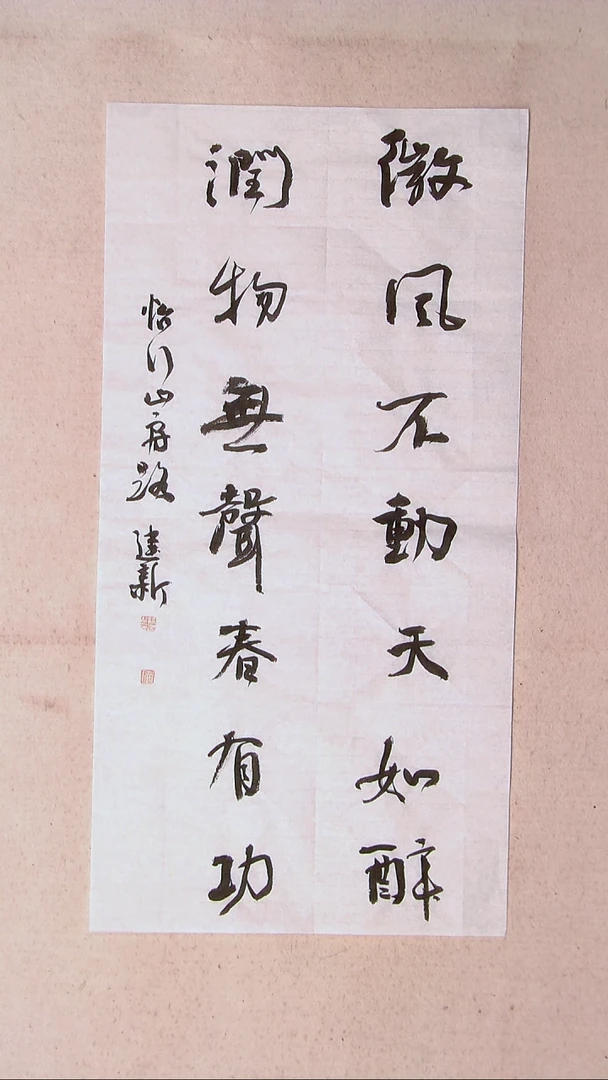 微風不動天如醉
潤物無聲春有功
怡行山房路建新